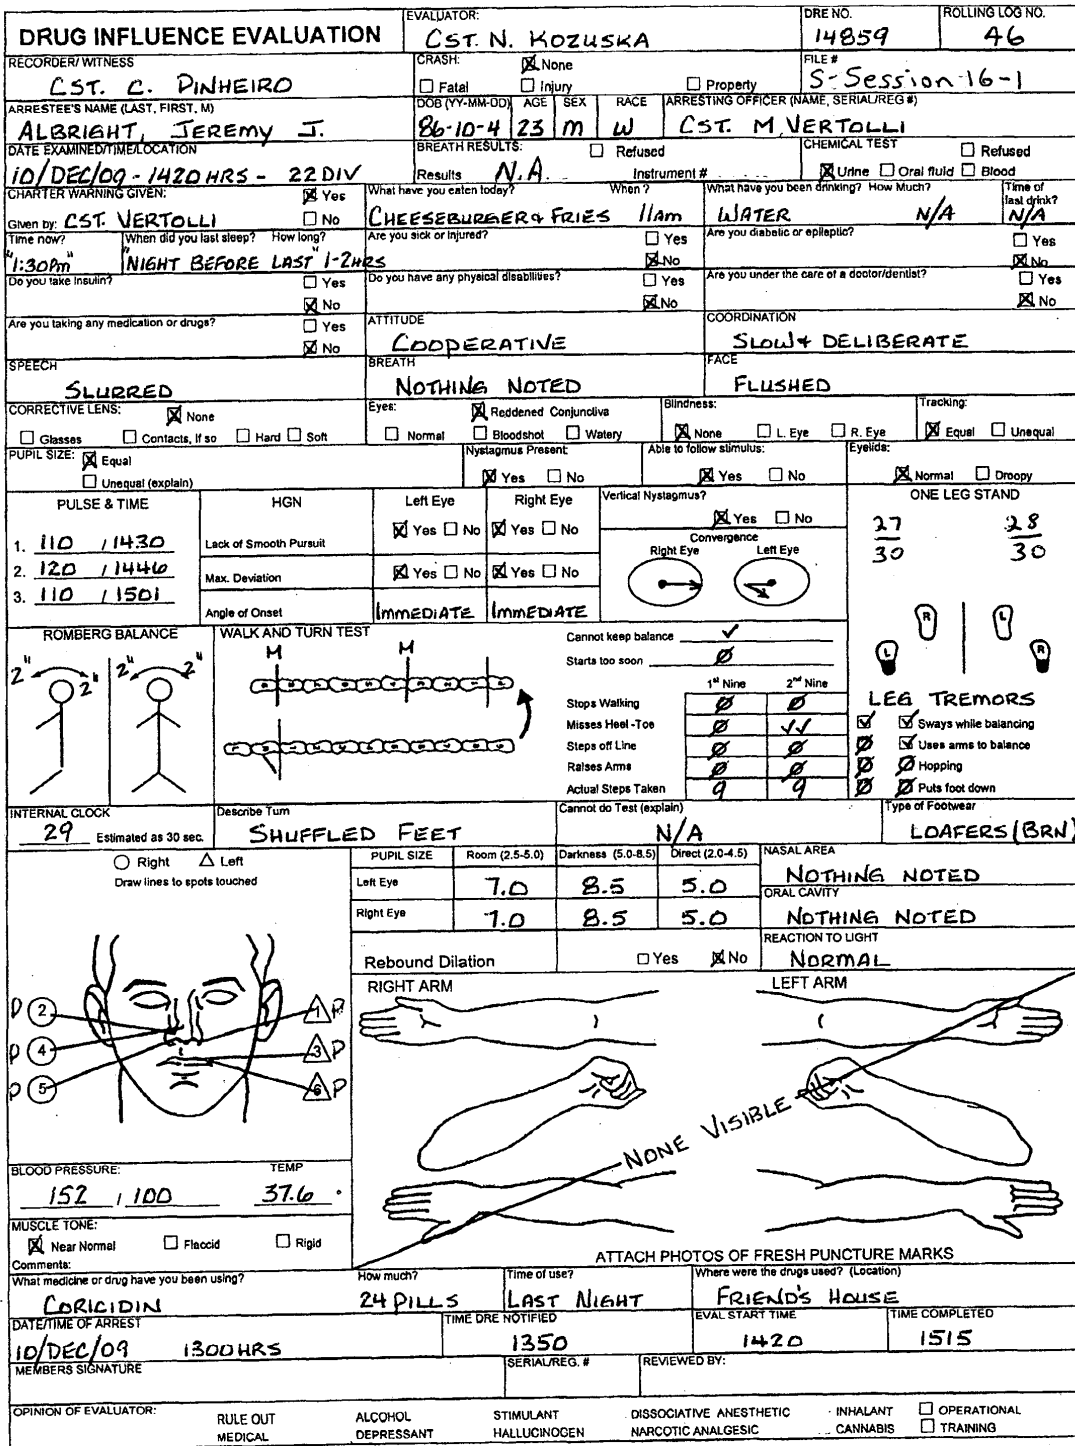 DRUG INFLUENCE EVALUATION
EVALUATOR:
CST. N. KOZUSKA
DRE NO.
14859
ROLLING LOG NO.
46
RECORDER/ WITNESS
CST. C. PINHEIRO
CRASH: ☒ None
☐ Fatal ☐ Injury ☐ Property
FILE #
S-Session-16-1
ARRESTEE'S NAME (LAST, FIRST, M)
ALBRIGHT, JEREMY J.
DOB (YY-MM-DD) AGE SEX RACE
86-10-4 23 M W
ARRESTING OFFICER (NAME, SERIAL/REG #)
CST. M. VERTOLLI
DATE EXAMINED/TIME/LOCATION
10/DEC/09 - 1420 HRS - 22 DIV
BREATH RESULTS: ☐ Refused
Results N.A. Instrument #
CHEMICAL TEST ☐ Refused
☒ Urine ☐ Oral fluid ☐ Blood
CHARTER WARNING GIVEN: ☒ Yes
Given by: CST. VERTOLLI ☐ No
What have you eaten today? When ?
CHEESEBURGER & FRIES 11am
What have you been drinking? How Much?
WATER N/A
Time of last drink?
N/A
Time now?
"1:30pm"
When did you last sleep? How long?
"NIGHT BEFORE LAST" 1-2HRS
Are you sick or injured? ☐ Yes
☒ No
Are you diabetic or epileptic? ☐ Yes
☒ No
Do you take insulin? ☐ Yes
☒ No
Do you have any physical disabilities? ☐ Yes
☒ No
Are you under the care of a doctor/dentist? ☐ Yes
☒ No
Are you taking any medication or drugs? ☐ Yes
☒ No
ATTITUDE
COOPERATIVE
COORDINATION
SLOW & DELIBERATE
SPEECH
SLURRED
BREATH
NOTHING NOTED
FACE
FLUSHED
CORRECTIVE LENS: ☒ None
☐ Glasses ☐ Contacts, if so ☐ Hard ☐ Soft
Eyes: ☒ Reddened Conjunctiva
☐ Normal ☐ Bloodshot ☐ Watery
Blindness:
☒ None ☐ L. Eye ☐ R. Eye
Tracking:
☒ Equal ☐ Unequal
PUPIL SIZE: ☒ Equal
☐ Unequal (explain)
Nystagmus Present
☒ Yes ☐ No
Able to follow stimulus:
☒ Yes ☐ No
Eyelids:
☒ Normal ☐ Droopy
PULSE & TIME
1. 110 / 1430
2. 120 / 1446
3. 110 / 1501
HGN Left Eye Right Eye
Lack of Smooth Pursuit ☒ Yes ☐ No ☒ Yes ☐ No
Max. Deviation ☒ Yes ☐ No ☒ Yes ☐ No
Angle of Onset IMMEDIATE IMMEDIATE
Vertical Nystagmus?
☒ Yes ☐ No
Convergence
Right Eye Left Eye
ONE LEG STAND
27/30 28/30
R L
L R
LEG TREMORS
Sways while balancing
Uses arms to balance
Hopping
Puts foot down
ROMBERG BALANCE
2" 2" 2" 2"
WALK AND TURN TEST
M M
Cannot keep balance ✓
Starts too soon Ø
1st Nine 2nd Nine
Stops Walking Ø Ø
Misses Heel -Toe Ø ✓✓
Steps off Line Ø Ø
Raises Arms Ø Ø
Actual Steps Taken 9 9
INTERNAL CLOCK
29 Estimated as 30 sec.
Describe Turn
SHUFFLED FEET
Cannot do Test (explain)
N/A
Type of Footwear
LOAFERS (BRN)
○ Right △ Left
Draw lines to spots touched
P 2 1 P
P 4 3 P
P 5 6 P
PUPIL SIZE Room (2.5-5.0) Darkness (5.0-8.5) Direct (2.0-4.5)
Left Eye 7.0 8.5 5.0
Right Eye 7.0 8.5 5.0
Rebound Dilation ☐ Yes ☒ No
NASAL AREA
NOTHING NOTED
ORAL CAVITY
NOTHING NOTED
REACTION TO LIGHT
NORMAL
RIGHT ARM LEFT ARM
NONE VISIBLE
ATTACH PHOTOS OF FRESH PUNCTURE MARKS
BLOOD PRESSURE: TEMP
152 / 100 37.6 °
MUSCLE TONE:
☒ Near Normal ☐ Flaccid ☐ Rigid
Comments:
What medicine or drug have you been using? How much?
CORICIDIN 24 PILLS
Time of use?
LAST NIGHT
Where were the drugs used? (Location)
FRIEND'S HOUSE
DATE/TIME OF ARREST
10/DEC/09 1300HRS
TIME DRE NOTIFIED
1350
EVAL START TIME
1420
TIME COMPLETED
1515
MEMBERS SIGNATURE
SERIAL/REG. #
REVIEWED BY:
OPINION OF EVALUATOR:
RULE OUT ALCOHOL STIMULANT DISSOCIATIVE ANESTHETIC INHALANT ☐ OPERATIONAL
MEDICAL DEPRESSANT HALLUCINOGEN NARCOTIC ANALGESIC CANNABIS ☐ TRAINING